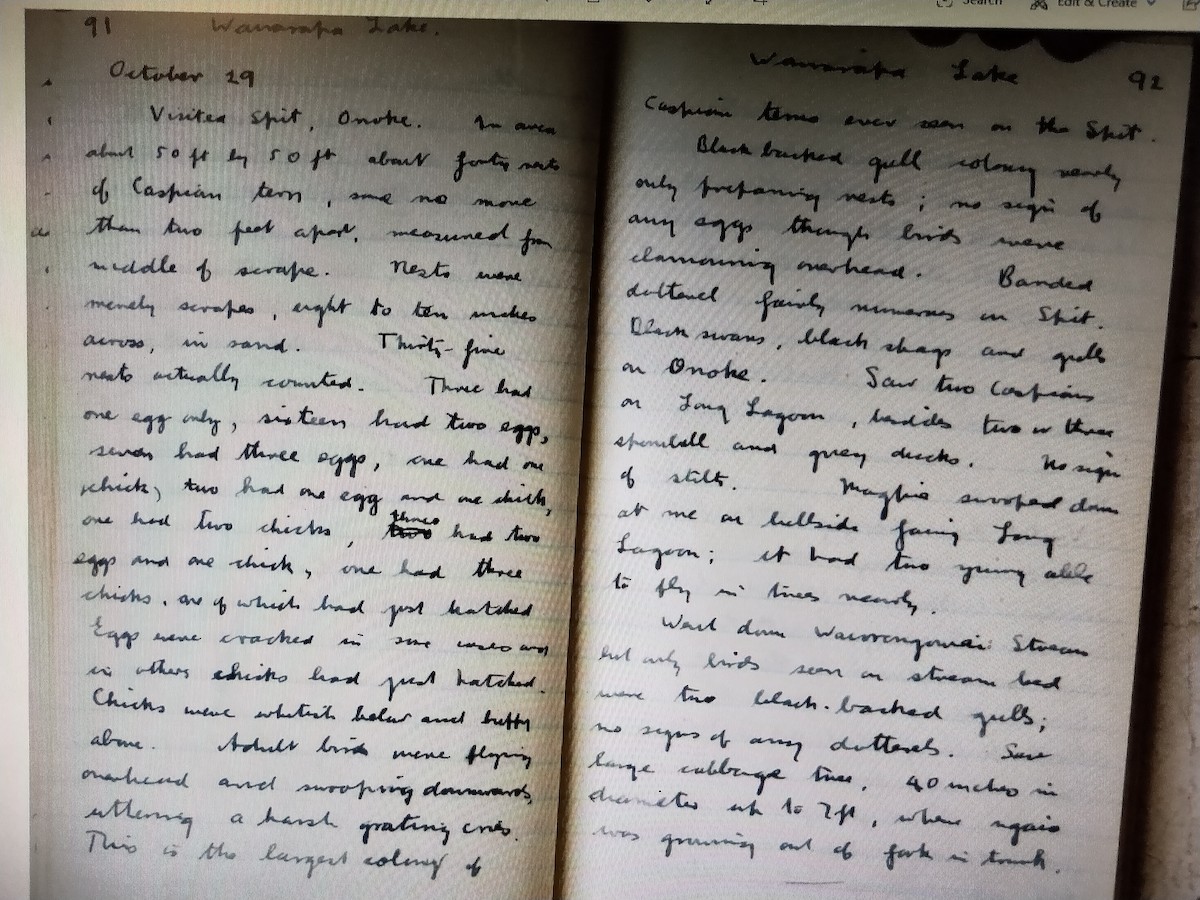 Search Edit & Create
91 Wairarapa Lake.
October 29
Visited Spit, Onoke. In area
about 50 ft by 50 ft about forty nests
of Caspian tern, some no more
than two feet apart, measured from
middle of scrape. Nests were
merely scrapes, eight to ten inches
across, in sand. Thirty-five
nests actually counted. Three had
one egg only, sixteen had two eggs,
seven had three eggs, one had one
chick, two had one egg and one chick,
one had two chicks, two three had two
eggs and one chick, one had three
chicks, one of which had just hatched
Eggs were cracked in some cases and
in others chicks had just hatched.
Chicks were whitish below and buffy
above. Adult birds were flying
overhead and swooping downwards,
uttering a harsh grating cries.
This is the largest colony of
Wairarapa Lake 92
Caspian terns ever seen on the Spit.
Black backed gull colony nearby
only preparing nests; no sign of
any eggs though birds were
clamouring overhead. Banded
dotterel fairly numerous on Spit.
Black swans, black shags and gulls
on Onoke. Saw two Caspians
on Long Lagoon, besides two or three
spoonbill and grey ducks. No sign
of stilts. Magpie swooped down
at me on hillside facing Long
Lagoon; it had two young able
to fly in trees nearby.
Went down Waiorongomai Stream
but only birds seen on stream bed
were two black-backed gulls;
no signs of any dotterels. Saw
large cabbage tree, 40 inches in
diameter up to 7ft, where ngaio
was growing out of fork in trunk.